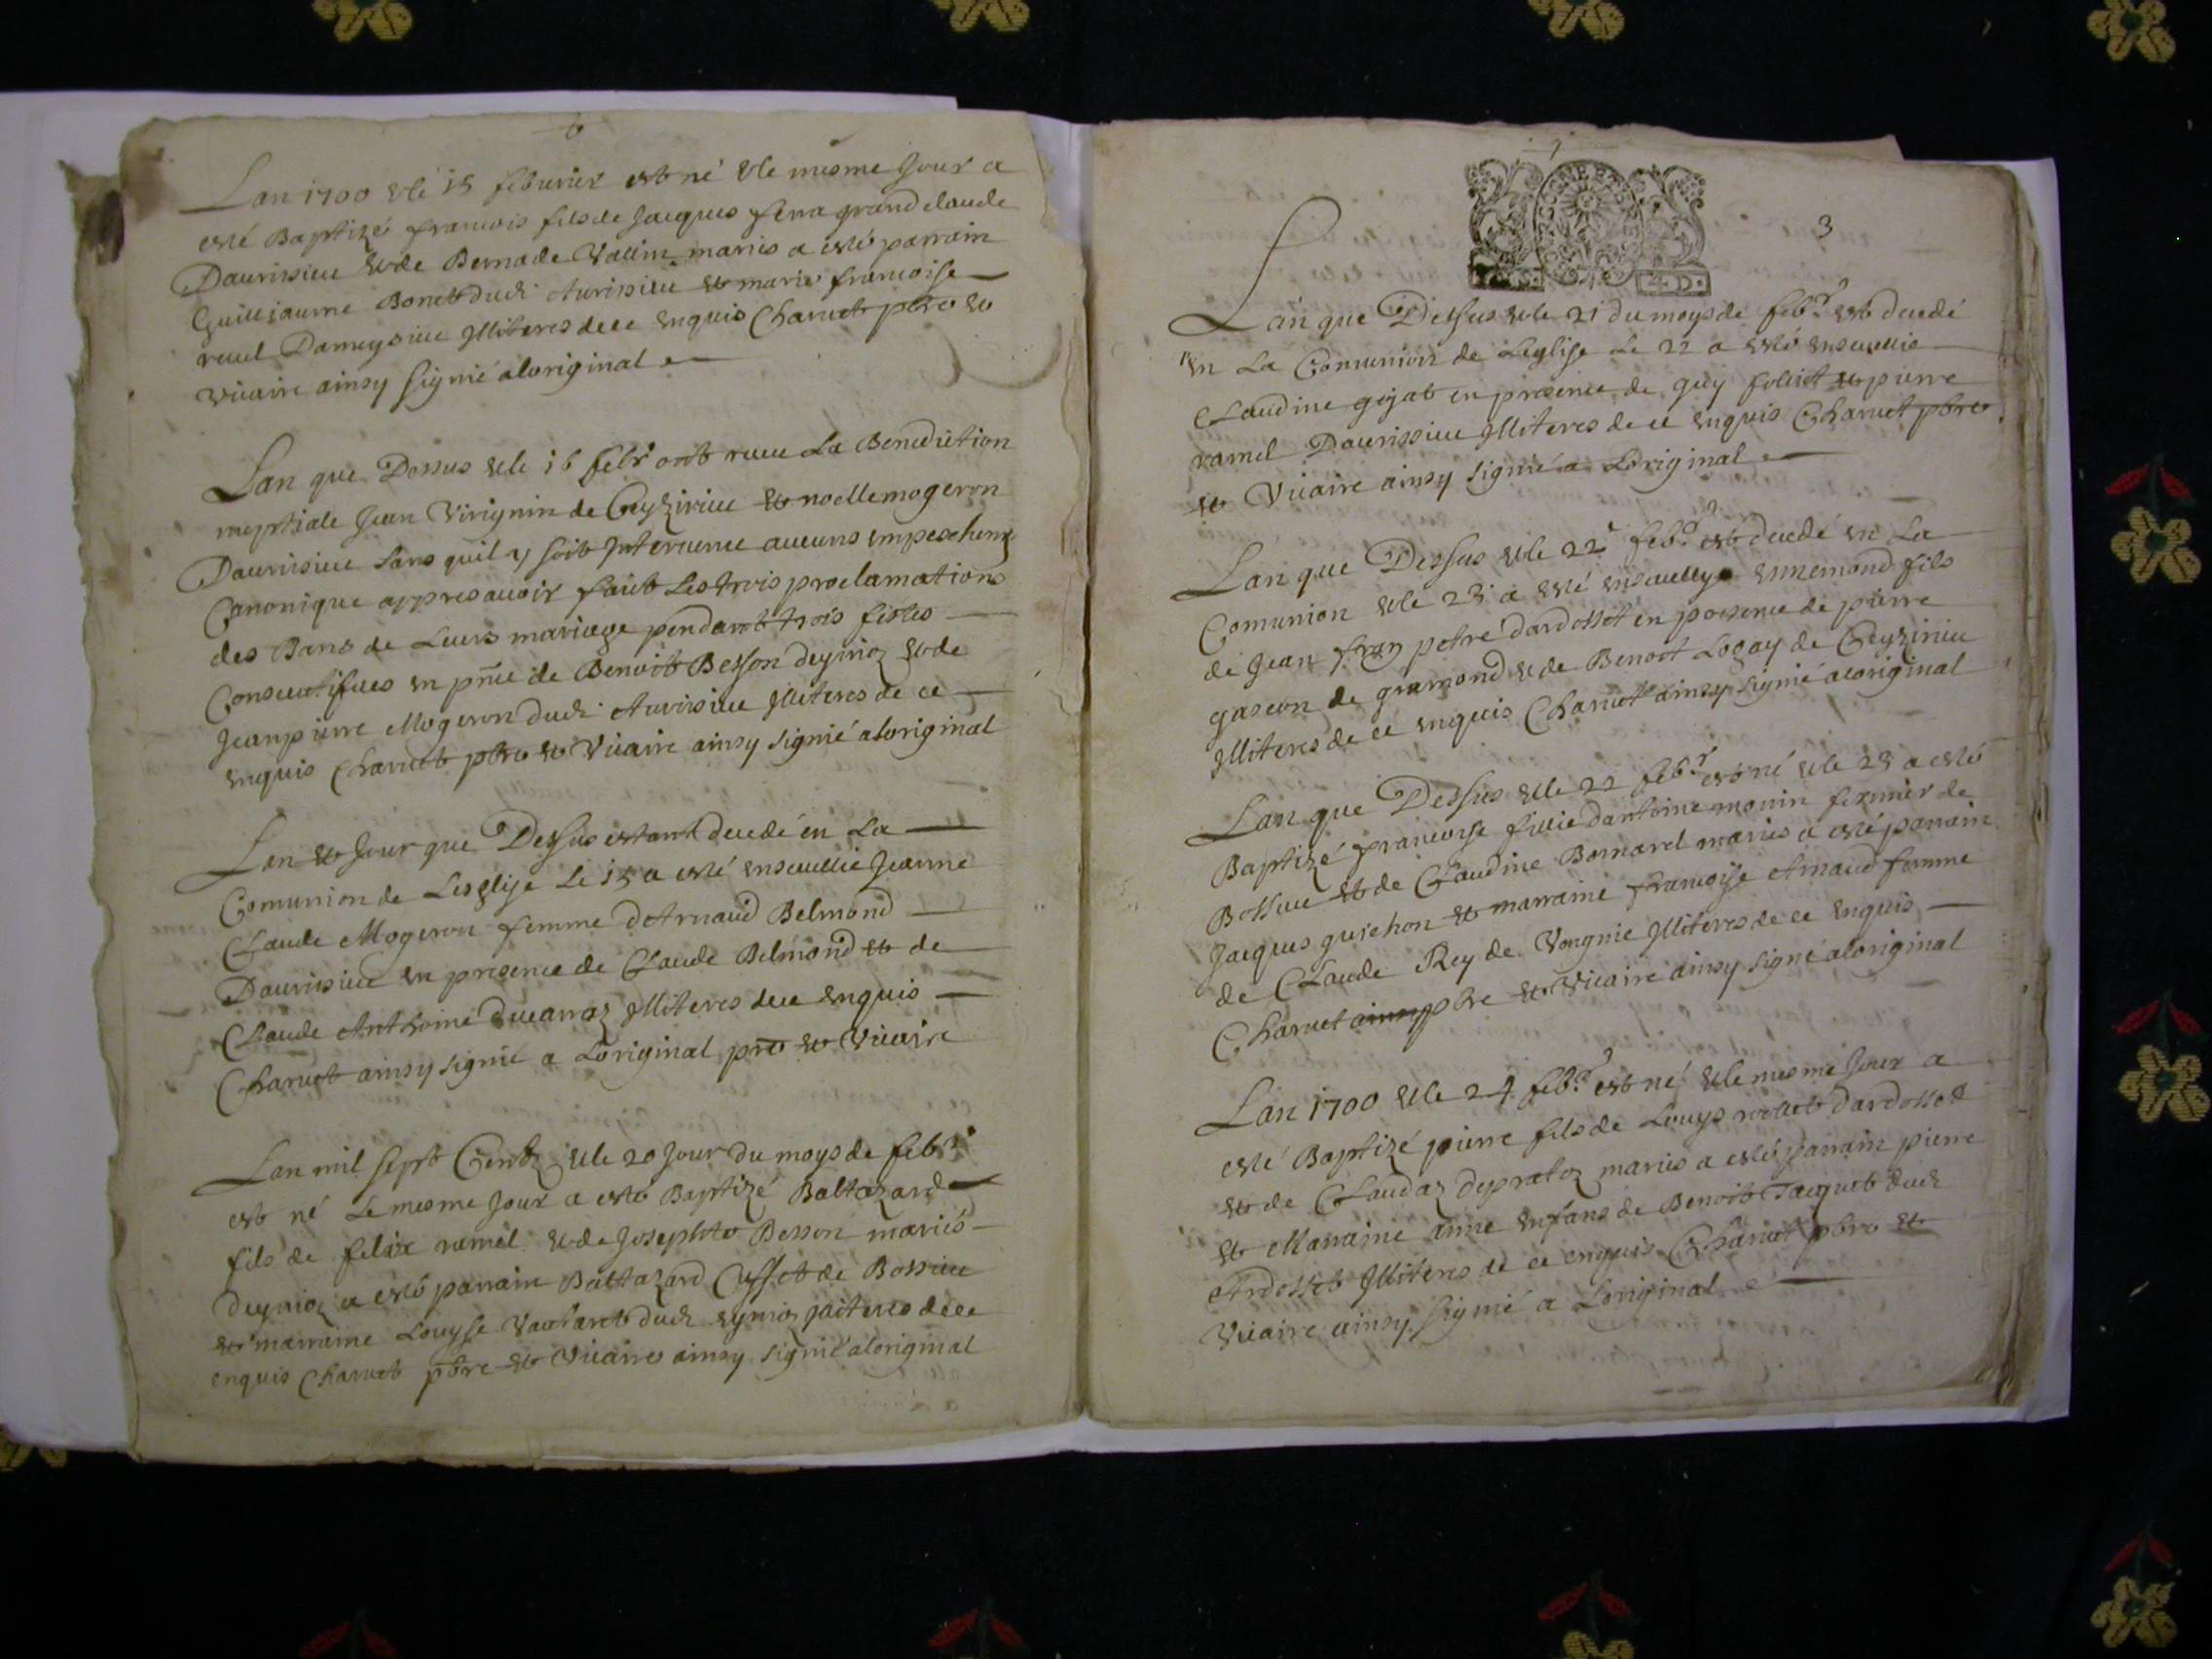 6
Lan 1700 & le 15 feburier est né & le mesme Jour a
esté Baptizé francois fils de Jacques ferra grand claude
Daurissieu & de Bernade Vallin mariés a esté parrain
Guilliaume Bonet dud. Aurissieu & marie francoise
revel Dameysieu Illiteres de ce enquis Charvet pbre &
Vicaire ainsy signié a loriginal
Lan que Dessus & le 16 febr ont receu La Benediction
nuptiale Jean Virignin de Creyzivieu & noelle mogeron
Daurissieu sans quil y soit Intervenu aucuns empeschemz
Canonique appres avoir faict Les trois proclamations
des Bans de Leurs mariage pendant trois festes
Consecutifves en pnce de Benoit Besson deynioz & de
Jean pierre Mogeron dud. Aurissieu Illiteres de ce
enquis Charvet pbre & Vicaire ainsy signié a loriginal
Lan & Jour que Dessus estant decedé en La
Comunion de Lesglise Le 15 a esté ensevellie Jeanne
Claude Mogeron femme dArnaud Belmond
Daurissieu en presence de Claude Belmond & de
Claude Anthoine ducarroz Illiteres de ce enquis
Charvet ainsy signié a Loriginal pre & Vicaire
Lan mil sept Centz & le 20 Jour du moys de febr
est né Le mesme Jour a esté Baptizé Baltazard
fils de felix ramel & de Josephte Besson mariés
deynioz a esté parrain Baltazard Cusset de Bossieu
& marraine Louyse dud. eynioz Illiteres de ce
enquis Charvet pbre & Vicaire ainsy signié a loriginal
7
GNE ET
4. D.
3
Lan que Dessus & le 21 du moys de febr. est decedé
en La Comunion de Leglise Le 22 a esté ensevellie
Claudine gojat en presence de guy follict & pierre
ramel Daurissieu Illiteres de ce enquis Charvet pbre
& Vicaire ainsy signié a Loriginal
Lan que Dessus & le 22 febr. est decedé en La
Comunion & le 23 a esté ensevelly Ennemond fils
de Jean petre dardosset en presence de pierre
gascon de gramond & de Benoit Logay de Creyzivieu
Illiteres de ce enquis Charvet ainsy signié a loriginal
Lan que Dessus & le 22 febr. est né & le 23 a esté
Baptizé francoise fillie dantoine monin fermier de
Bossieu & de Claudine Bornarel mariés a esté parrain
Jacques guichon & marraine francoise Arnaud femme
de Claude Rey de Vongnie Illiteres de ce enquis
Charvet ainsy pbre & Vicaire ainsy signé a loriginal
Lan 1700 & le 24 febr. est né & le mesme Jour a
esté Baptizé pierre fils de Louys rollet dardosset
& de Claudaz depratoz mariés a esté parrain pierre
& Marraine anne enfans de Benoit Jacquet dud.
Ardosset Illiteres de ce enquis Charvet pbre &
Vicaire ainsy signié a Loriginal